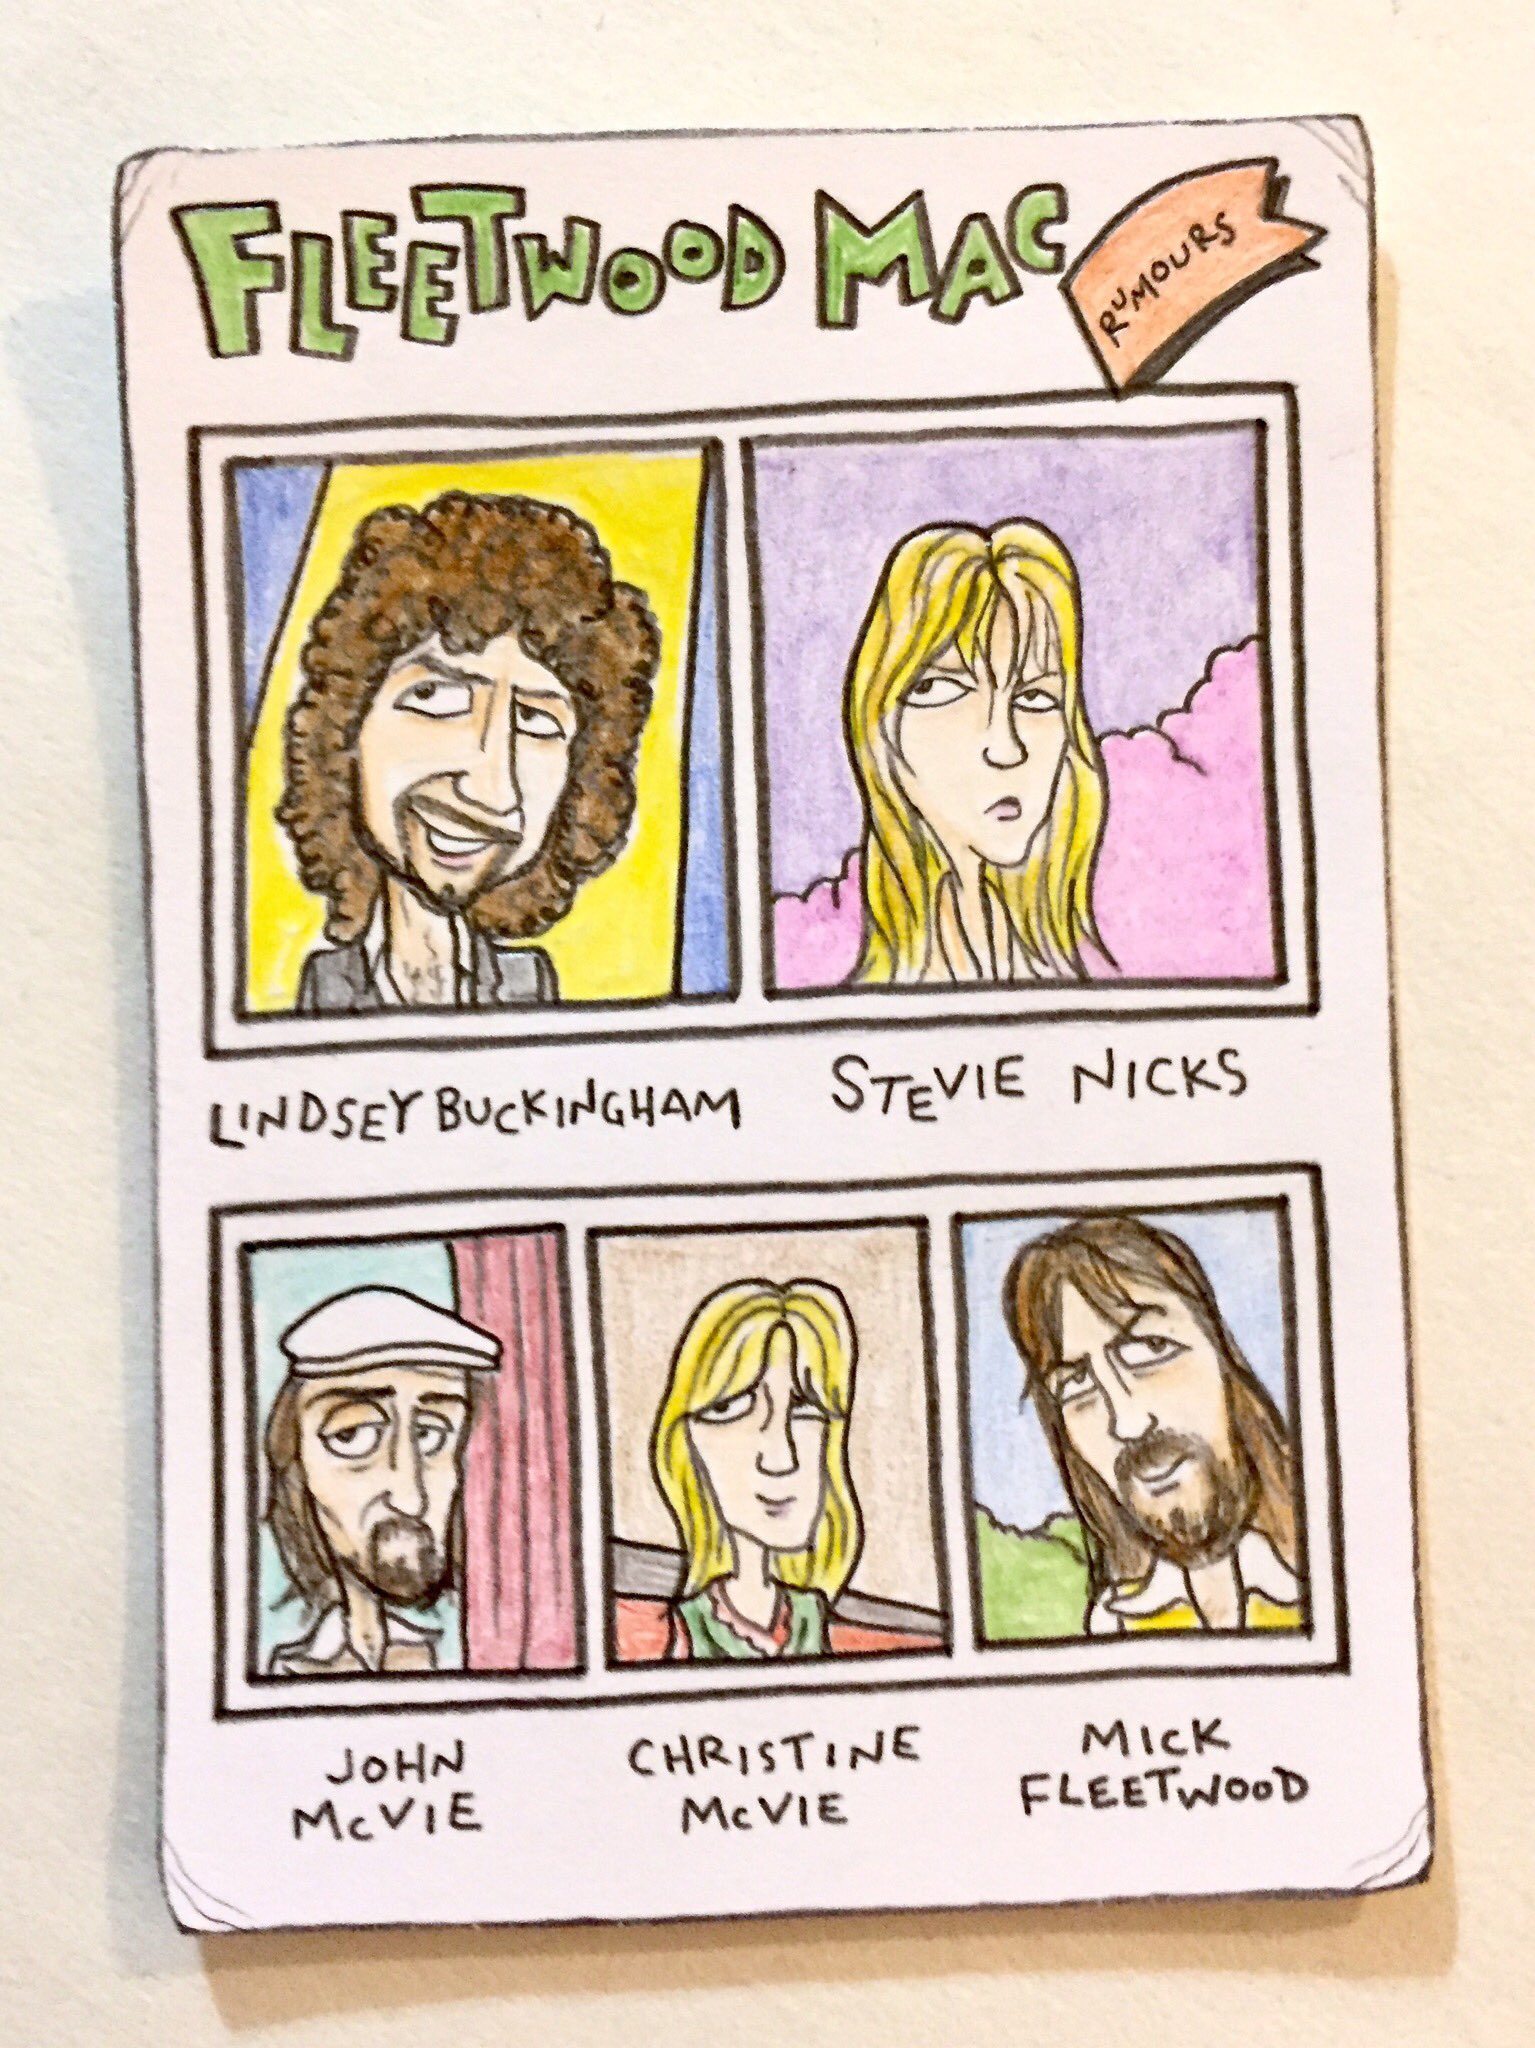 FLEETWOOD MAC
RUMOURS
LINDSEY BUCKINGHAM
STEVIE NICKS
JOHN
McVIE
CHRISTINE
McVIE
MICK
FLEETWOOD